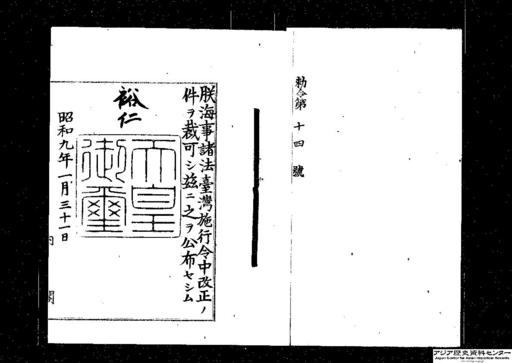 勅令第十四號
朕海事諸法臺灣施行令中改正ノ
件ヲ裁可シ茲ニ之ヲ公布セシム
裕仁
天皇
御璽
昭和九年一月三十一日
内閣
アジア歴史資料センター
Japan Center for Asian Historical Records